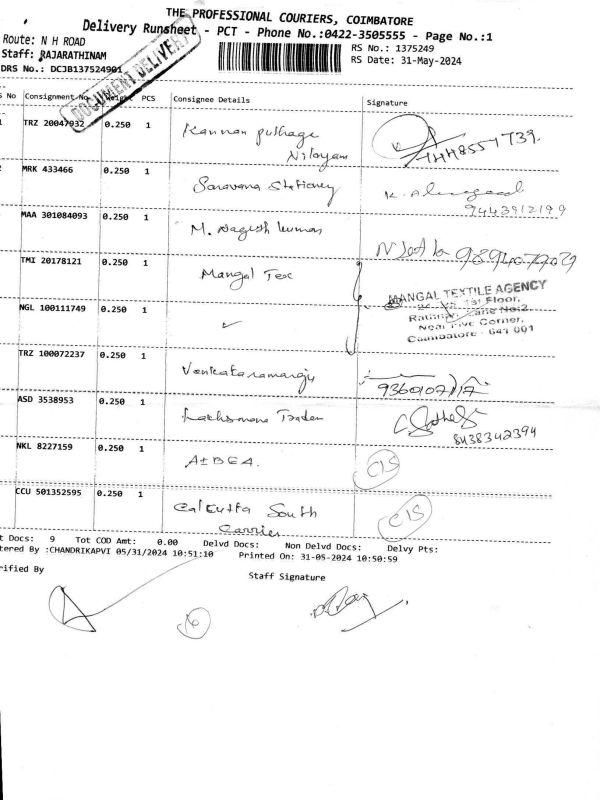 THE PROFESSIONAL COURIERS, COIMBATORE
Delivery Runsheet - PCT - Phone No.:0422-3505555 - Page No.:1
Route: N H ROAD
RS No.: 1375249
Staff: RAJARATHINAM
RS Date: 31-May-2024
DRS No.: DCJB137524901
DOCUMENT DELIVERY
S No Consignment No Weight PCS Consignee Details Signature
TRZ 20047932 0.250 1 Kannan
MRK 433466 0.250 1 Saravana Stationery
9443912199
MAA 301084093 0.250 1 M. Nagesh kumar
TMI 20178121 0.250 1 Mangal Tex
MANGAL TEXTILE AGENCY
1st Floor,
Lane No:2,
Near Five Corner,
Coimbatore - 641 001
NGL 100111749 0.250 1 ✓
TRZ 100072237 0.250 1 Venkataramanaju
ASD 3538953 0.250 1
8438342394
NKL 8227159 0.250 1 AIBEA. CIS
CCU 501352595 0.250 1 Calcutta South
Carrier CIS
t Docs: 9 Tot COD Amt: 0.00 Delvd Docs: Non Delvd Docs: Delvy Pts:
tered By :CHANDRIKAPVI 05/31/2024 10:51:10 Printed On: 31-05-2024 10:50:59
rified By
Staff Signature
6